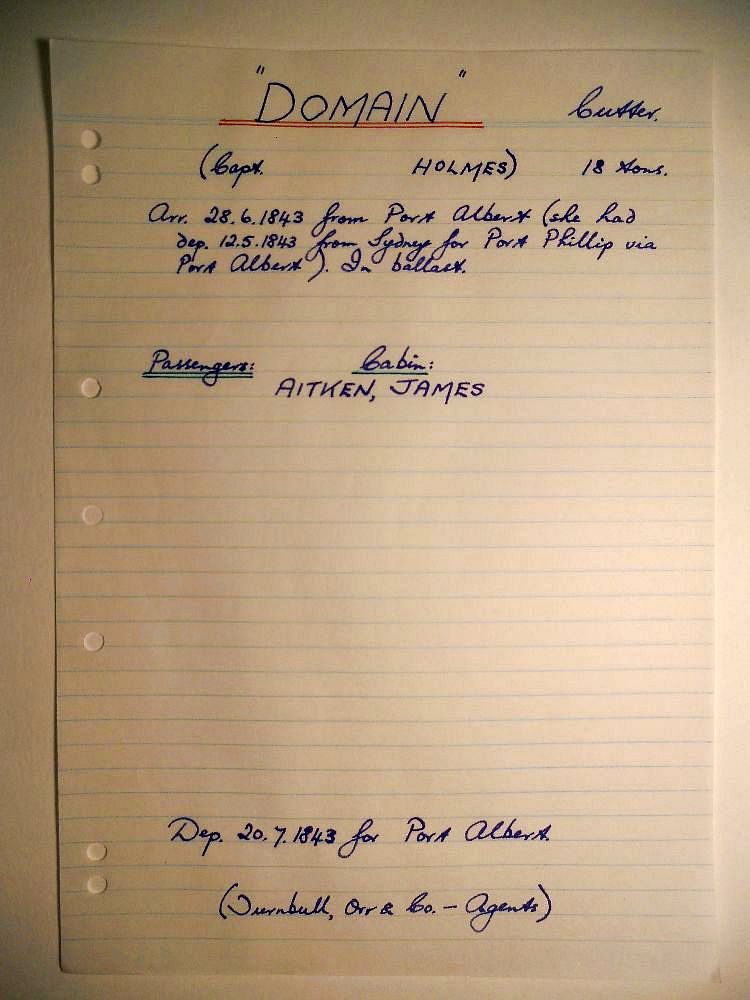 "DOMAIN" Cutter.
(Capt. HOLMES) 18 tons.
Arr. 28.6.1843 from Port Albert (she had
dep. 12.5.1843 from Sydney for Port Phillip via
Port Albert). In ballast.
Passengers: Cabin:
AITKEN, JAMES
Dep. 20.7.1843 for Port Albert
(Turnbull, Orr & Co. - Agents)